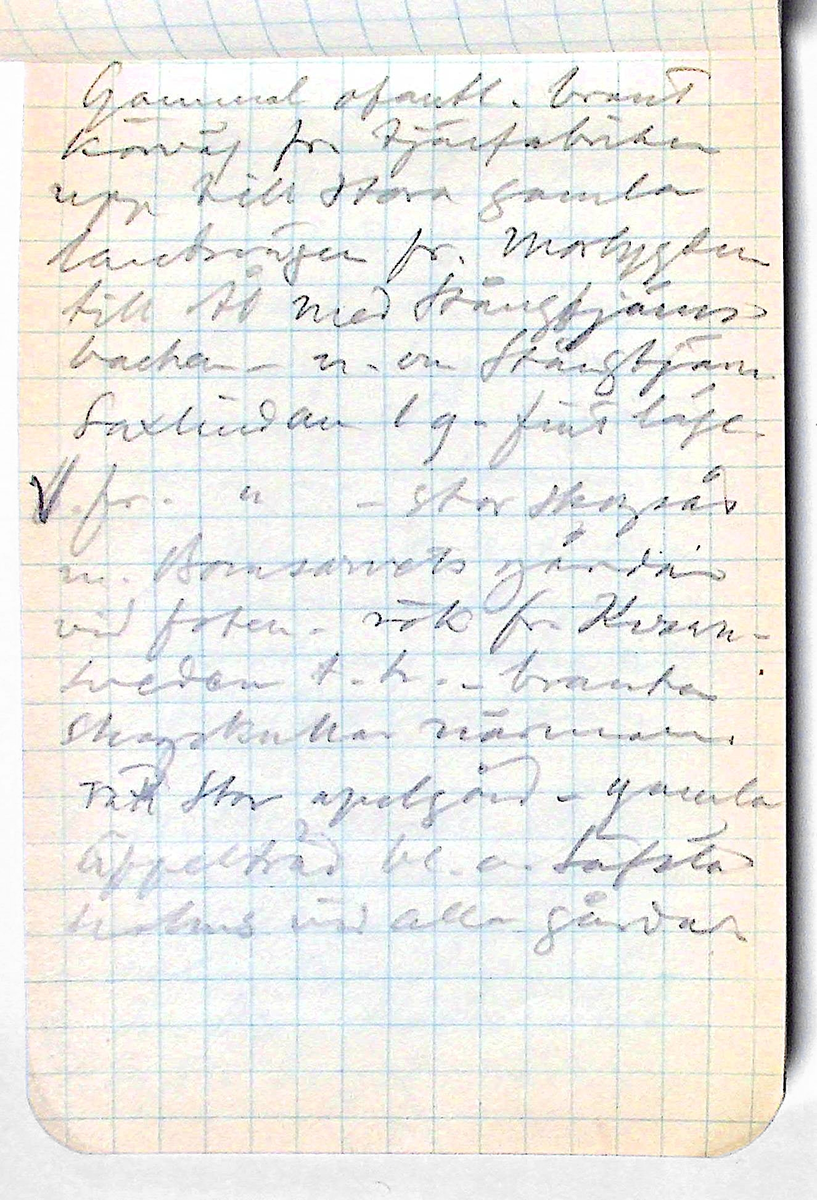 Gammal ofantl. brant
körväg fr tjärfabriken
upp till stora gamla
landsvägen fr. Morbygden
till Ål med Stångtjärns
backen - u. om Stångtjärn
1 g - fint läge
fr. " - stor skogsås
m. Bomsarvets gårdar
vid foten - rök fr. Kvarn-
sveden t.h. - branta
skogskullar närmare.
rätt stor apelgård - gamla
äppelträd bl. a. Säfsta
holms vid alla gårdar